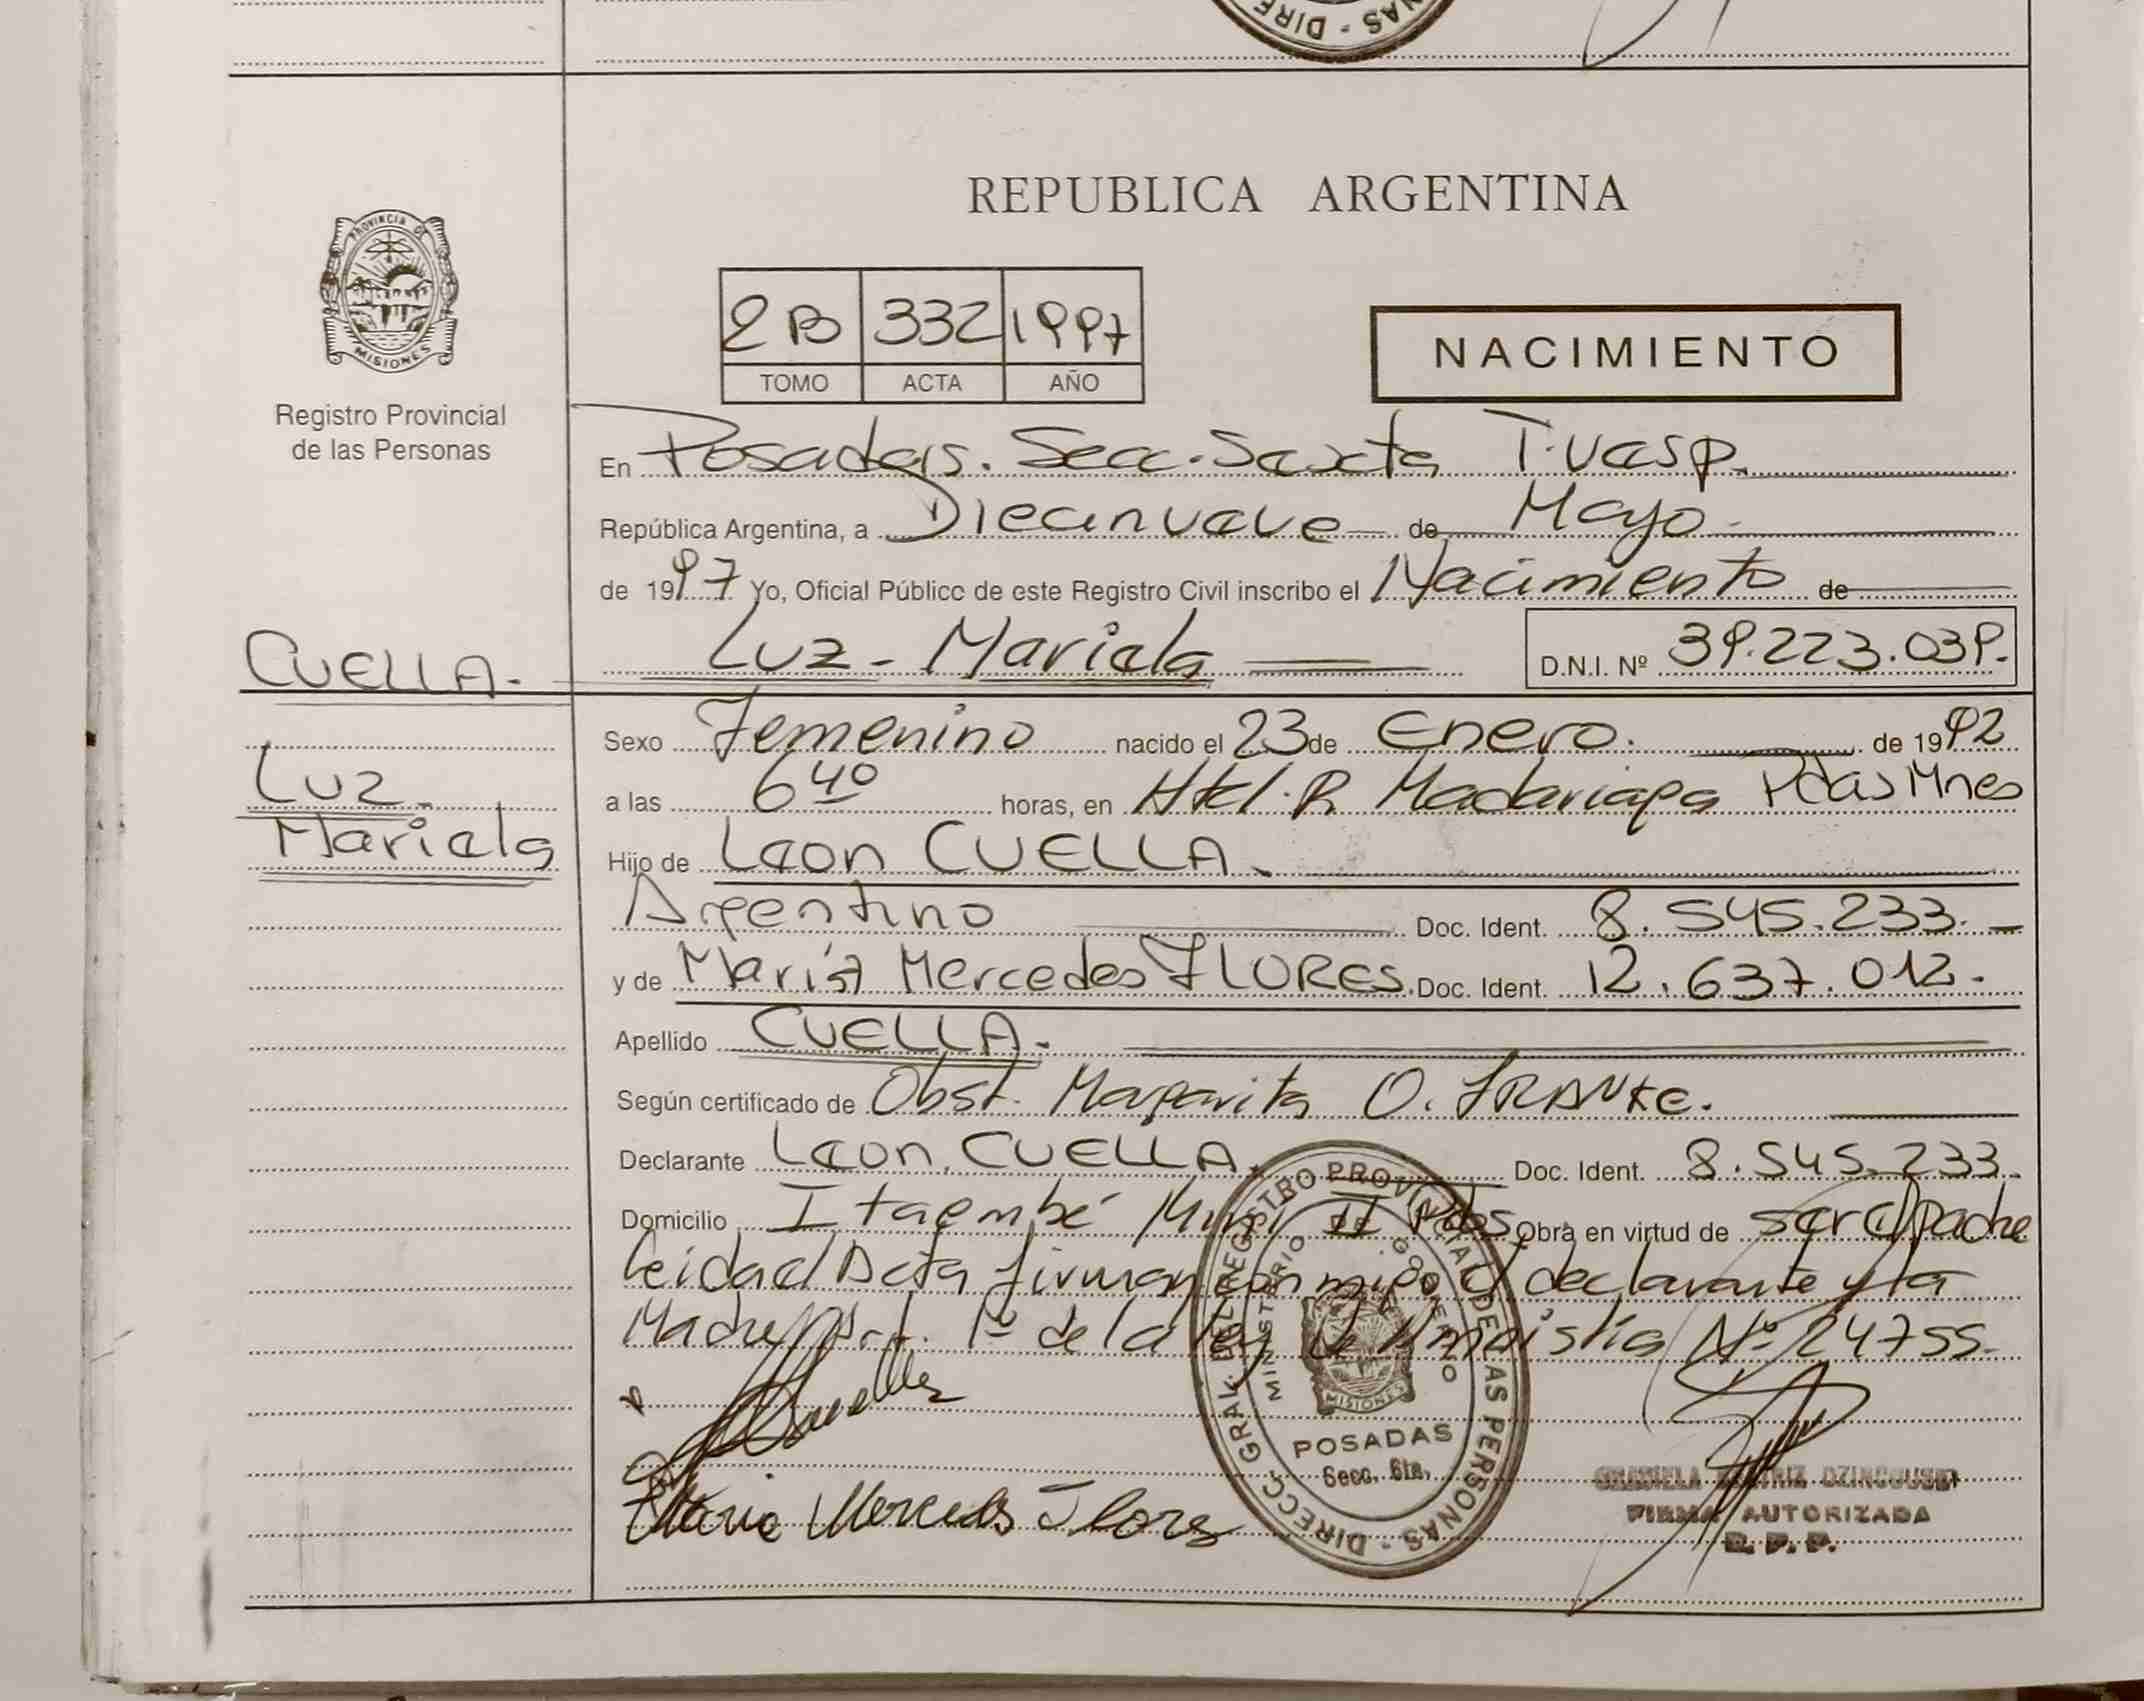 DIRE - NAS
REPUBLICA ARGENTINA
PROVINCIA DE
MISIONES
Registro Provincial
de las Personas
2B 332 1997
TOMO ACTA AÑO
NACIMIENTO
En Posadas. Secc. Sexta T. Vesp.
República Argentina, a Diecinueve de Mayo
de 1997 Yo, Oficial Público de este Registro Civil inscribo el Nacimiento de
Luz - Mariela D.N.I. Nº 39.223.039.
CUELLA.
Luz
Mariela
Sexo Femenino nacido el 23 de Enero. de 1992
a las 6 40 horas, en Htal. R. Madariaga Pdas Mnes
Hijo de Leon CUELLA.
Argentino Doc. Ident. 8.545.233.
y de María Mercedes FLORES. Doc. Ident. 12.637.012.
Apellido CUELLA.
Según certificado de Obst. Margarita O. FRANKE.
Declarante Leon CUELLA. Doc. Ident. 8.545.233.
Domicilio Itaembé Mini II Pdas Obra en virtud de ser el padre
leida el Acta firman conmigo el declarante y la
Madre Art. 1º de la ley de Amnistia Nº 24755.
Cuella
Maria Mercedes Flores
DIRECC. GRAL. DEL REGISTRO PROVINCIAL DE LAS PERSONAS
MINISTERIO DE GOBIERNO
MISIONES
POSADAS
Secc. 6ta.
FIRMA AUTORIZADA
R. P. P.